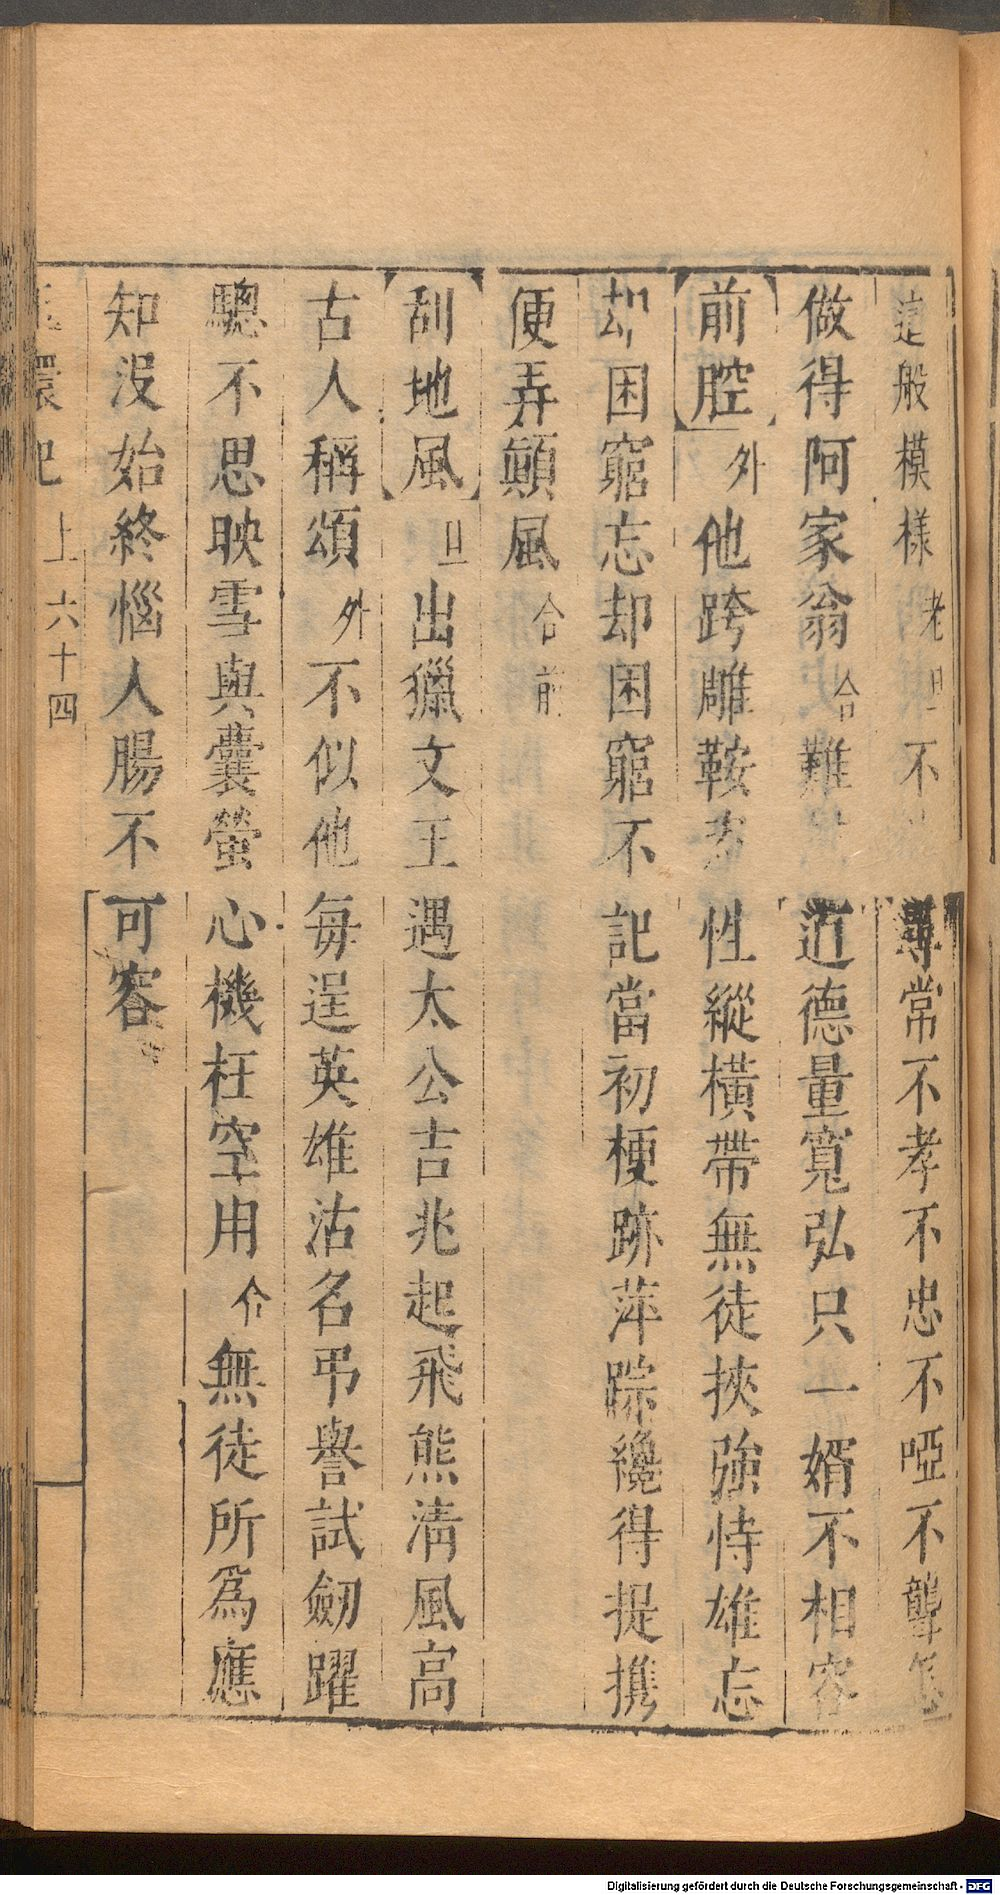 這般模樣老旦不尋常不孝不忠不啞不聾怎
做得阿家翁合難道德量寬弘只一婿不相容
前腔外他跨雕鞍性縱橫帶無徒挾強恃雄忘
却困窮忘却困窮不記當初梗跡萍踪纔得提攜
便弄顛風合前
刮地風旦出獵文王遇太公吉兆起飛熊清風高
古人稱頌外不似他每逞英雄沽名弔譽試劒躍
驄不思映雪與囊螢心機枉空用介無徒所為應
知沒始終惱人腸不可容
環記 上 六十四
Digitalisierung gefördert durch die Deutsche Forschungsgemeinschaft - DFG